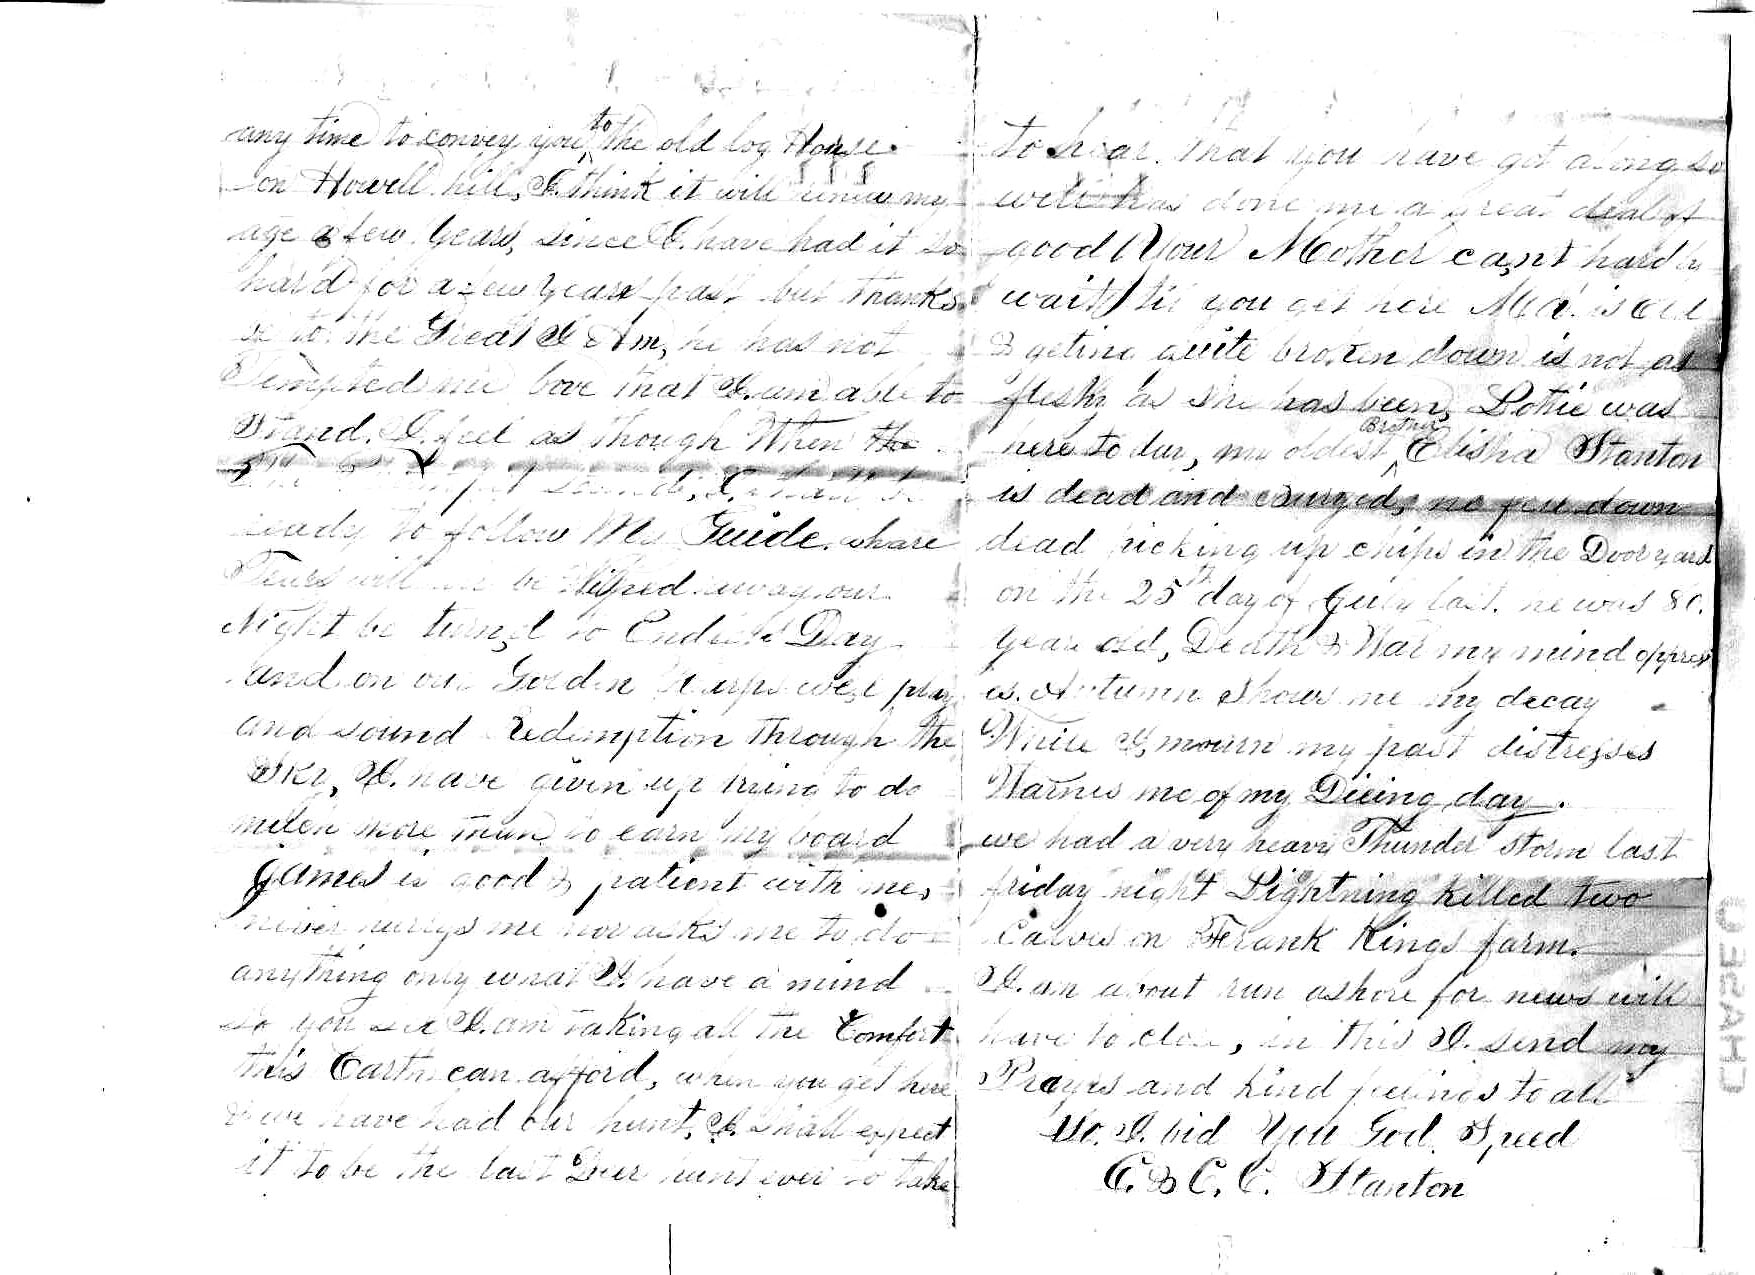 any time to convey you to the old log House
on Howell hill, I. think it will renew my
age a few Years, since I. have had it so
hard for a few Years past but thanks
be to the Great I Am, he has not
Tempted me bove that I. am able to
Stand. I. feel as though When the
I. shall be
ready to follow My Guide. whare
Tears will be Wiped away our
Night be turn,d to Endless Day
and on our Golden Harps we,l play
and sound redemption through the
Sky, I. have given up triing to do
much more than to earn my board
James is good & patient with me,
never hurrys me nor asks me to do
anything only what I. have a mind
So you see I. am taking all the Comfort
this Earth can afford, when you get here
& we have had our hunt, I. shall expect
it to be the last Deer hunt ever to take
to hear that you have got along so
well has done me a great deal of
good Your Mother ca,nt hardly
wait til you get here Ma. is old
& geting quite broken down is not as
fleshy as she has been, Lottie was
here to day, my oldest Brother Elisha Stanton
is dead and burryed, he fell down
dead picking up chips in the Dooryard
on the 25th day of July last. he was 80.
Years old, Death & War my mind oppress
as Autumn Shows me my decay
While I, mourn my past distresses
Warnes me of my Dieing day.
we had a very heavy Thunder Storm last
friday night Lightning killed two
Calves on Frank Kings farm.
I. am about run ashore for news will
have to close, in this I. send my
Prayrs and kind feelings to all
So. I. bid You God. Speed
E. & C. C. Stanton
CHASCO